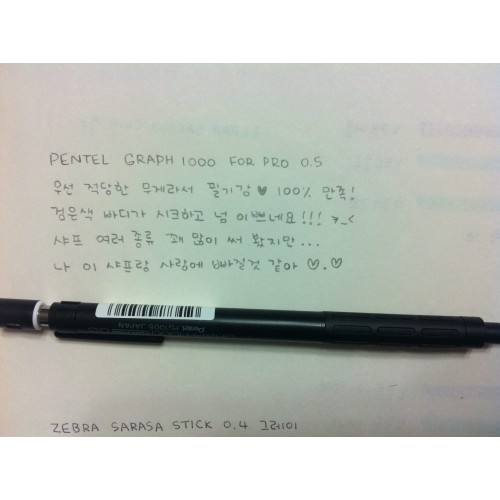 PENTEL GRAPH 1000 FOR PRO 0.5
우선 적당한 무게라서 필기감 ♥ 100% 만족!
검은색 바디가 시크하고 넘 이쁘네요!!! >_<
샤프 여러 종류 꽤 많이 써 봤지만...
나 이 샤프랑 사랑에 빠질것 같아 ♡.♡
Pentel PG1005 JAPAN
ZEBRA SARASA STICK 0.4 그레이